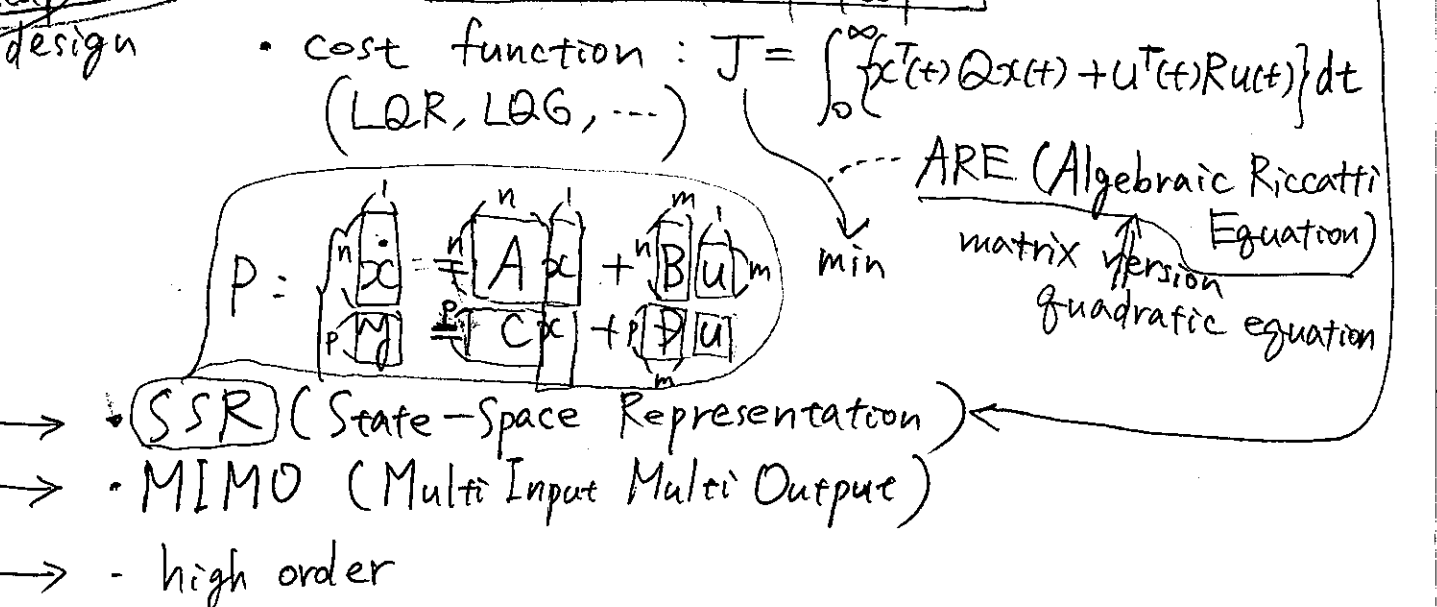 design · cost function : J = ∫₀^∞ {xᵀ(t)Qx(t) + uᵀ(t)Ru(t)}dt
(LQR, LQG, ...)
ARE (Algebraic Riccatti Equation)
min
matrix version
quadratic equation
P : { n ẋ 1 = n A n x 1 + n B m u 1 m
p y = p C x + p D m u
→ · SSR (State-Space Representation) ←
→ · MIMO (Multi Input Multi Output)
→ - high order